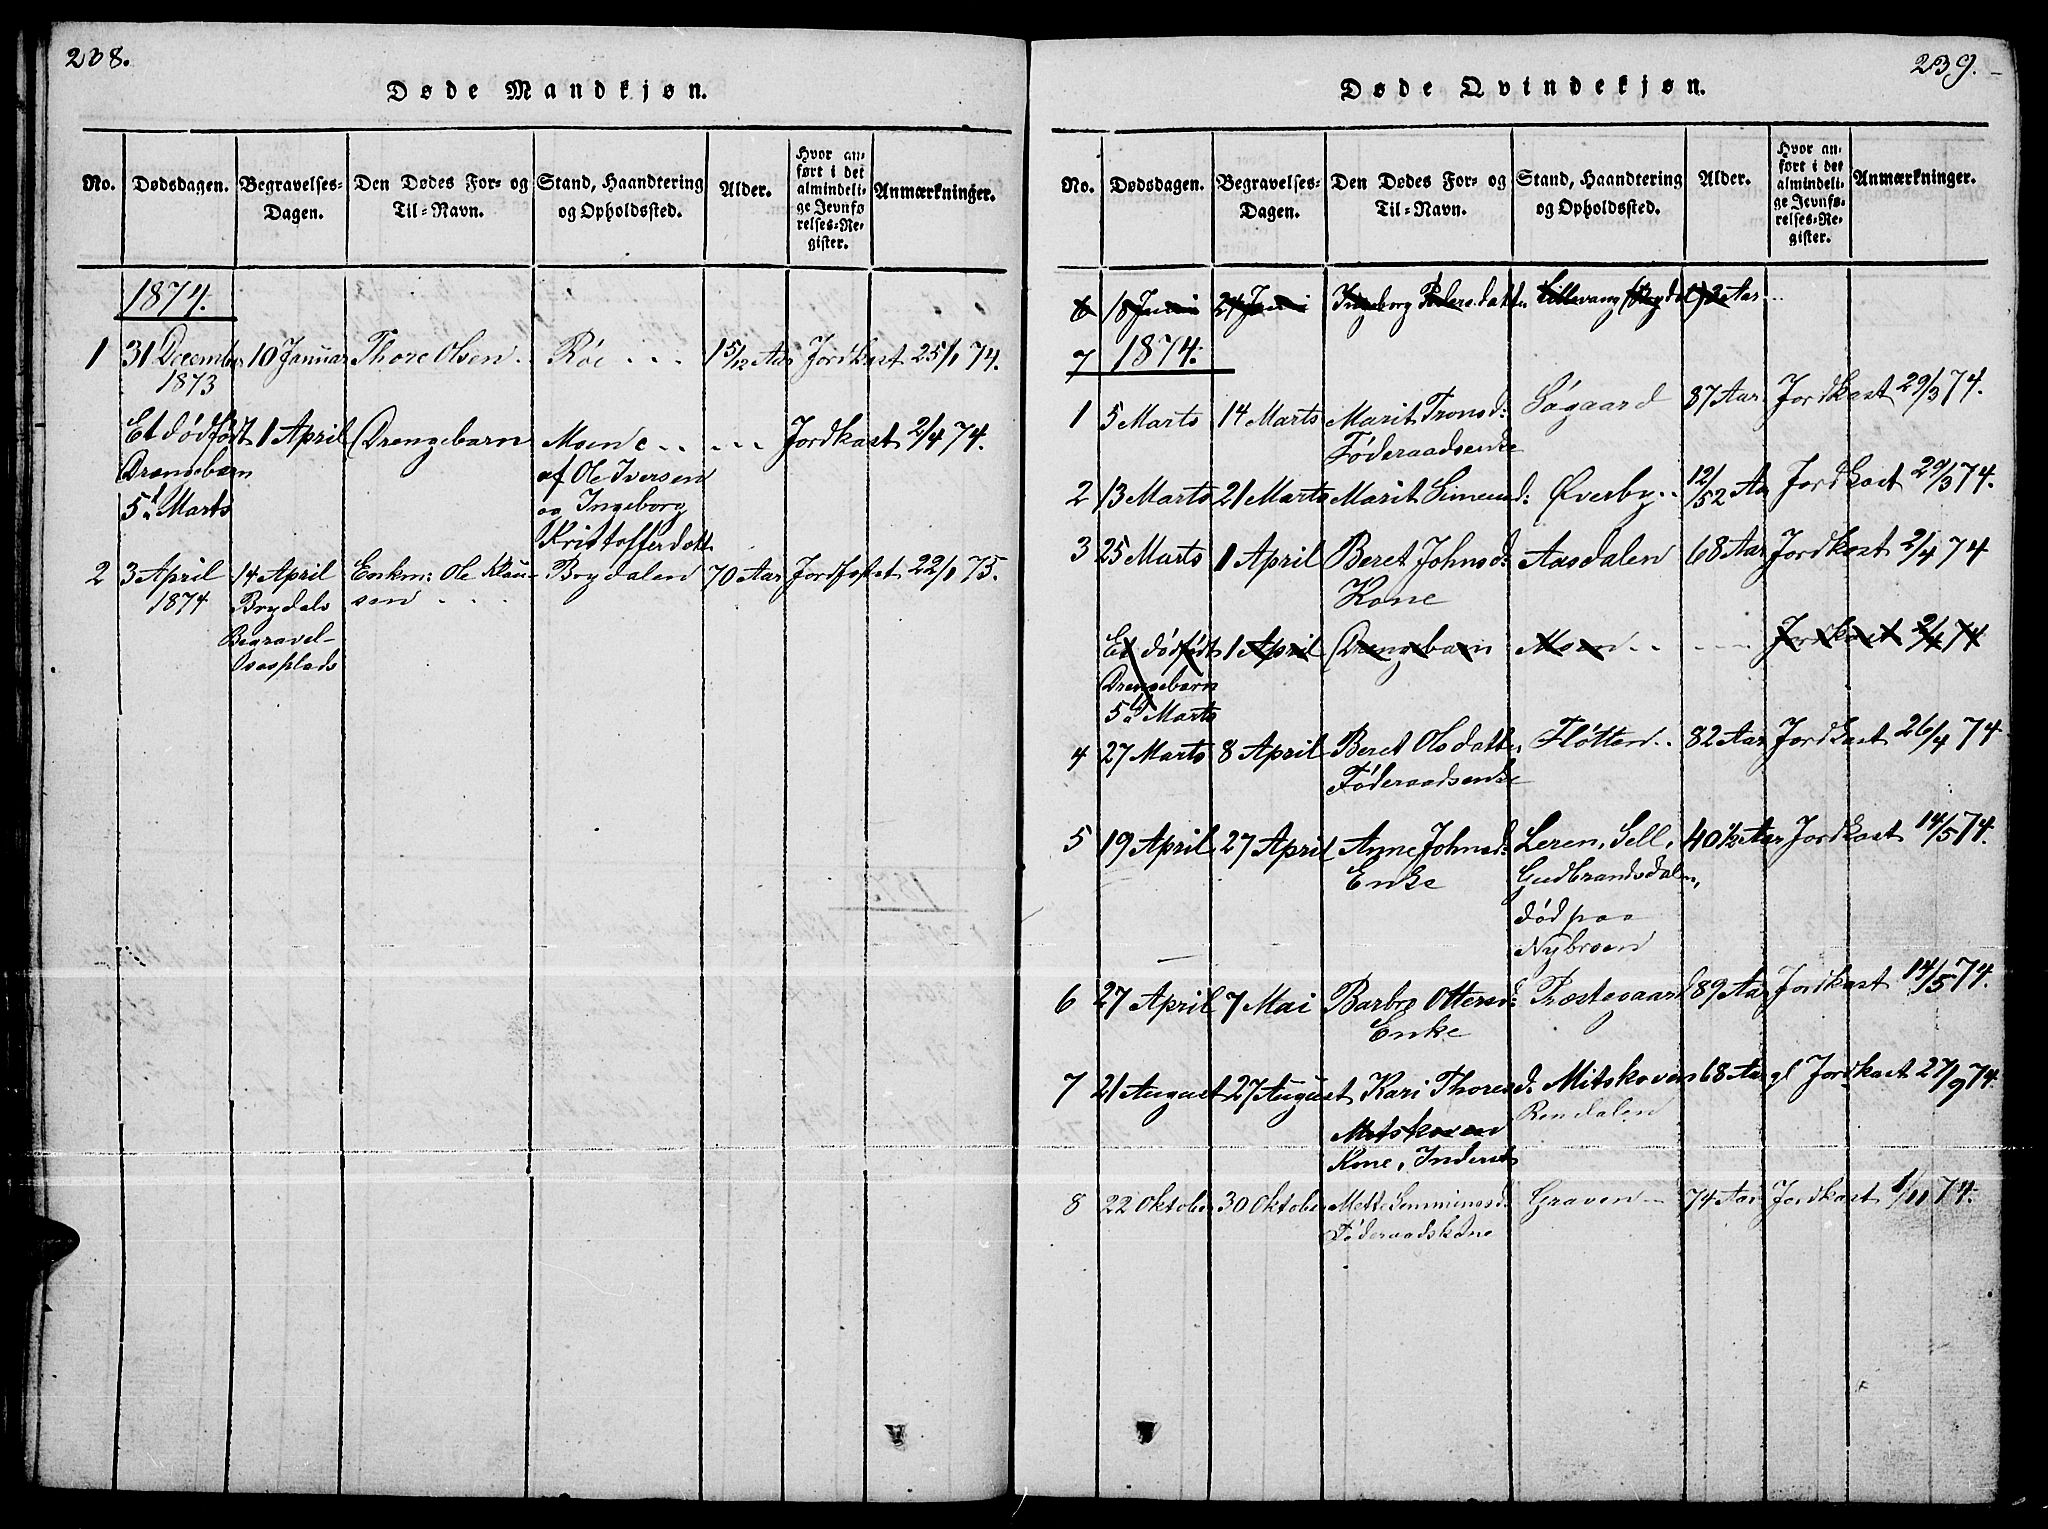 238.
Døde Mandkjøn.
No. Dødsdagen. Begravelses-Dagen. Den Dødes For- og Til-Navn. Stand, Haandtering og Opholdssted. Alder. Hvor anført i det almindelige Jevnførelses-Register. Anmærkninger.
1874.
1 31 December 10 Januar Thore Olsen. Røe 1 5/12 Aar Jordkast 25/1 74.
1873
Et dødfødt 1 April Drengebarn Moen Jordkast 2/4 74.
Drengebarn af Ole Iversen
5te Marts og Ingeborg
Kristofferdatt
2 3 April 14 April Enkm: Ole Klau- Brydalen 70 Aar Jordfæstet 22/1 75.
1874 Brydals sen
Begravel-
sesplads
239.
Døde Qvindekjøn.
No. Dødsdagen. Begravelses-Dagen. Den Dødes For- og Til-Navn. Stand, Haandtering og Opholdssted. Alder. Hvor anført i det almindelige Jevnførelses-Register. Anmærkninger.
6 18 Juni 24 Juni Ingeborg Pedersdatter Lillevang 92 Aar
7 1874.
1 5 Marts 14 Marts Marit Tronsd: Søgaard 87 Aar Jordkast 29/3 74.
Føderaadsenke
2 13 Marts 21 Marts Marit Simensd: Øverby 12/52 Aar Jordkast 29/3 74.
3 25 Marts 1 April Beret Johnsd: Aasdalen 68 Aar Jordkast 2/4 74
Kone
Et dødfødt 1 April Drengebarn Moen Jordkast 2/4 74
Drengebarn
5te Marts
4 27 Marts 8 April Beret Olsdatter Fløtten 82 Aar Jordkast 26/4 74
Føderaadsenke
5 19 April 27 April Anne Johnsd: Leren, Sell, 40 1/2 Aar Jordkast 14/5 74.
Enke Gudbrandsdalen,
død paa
Nybroen
6 27 April 7 Mai Barbro Ottersd: Præstegaard 89 Aar Jordkast 14/5 74.
Enke
7 21 August 27 August Kari Thoresd: Mitskoven 68 Aar gl Jordkast 27/9 74.
Rendalen
Mitskoven
Kone, Inderst
8 22 Oktober 30 Oktober Mette Semmingsd: Graven 74 Aar Jordkast 1/11 74.
Føderaadskone